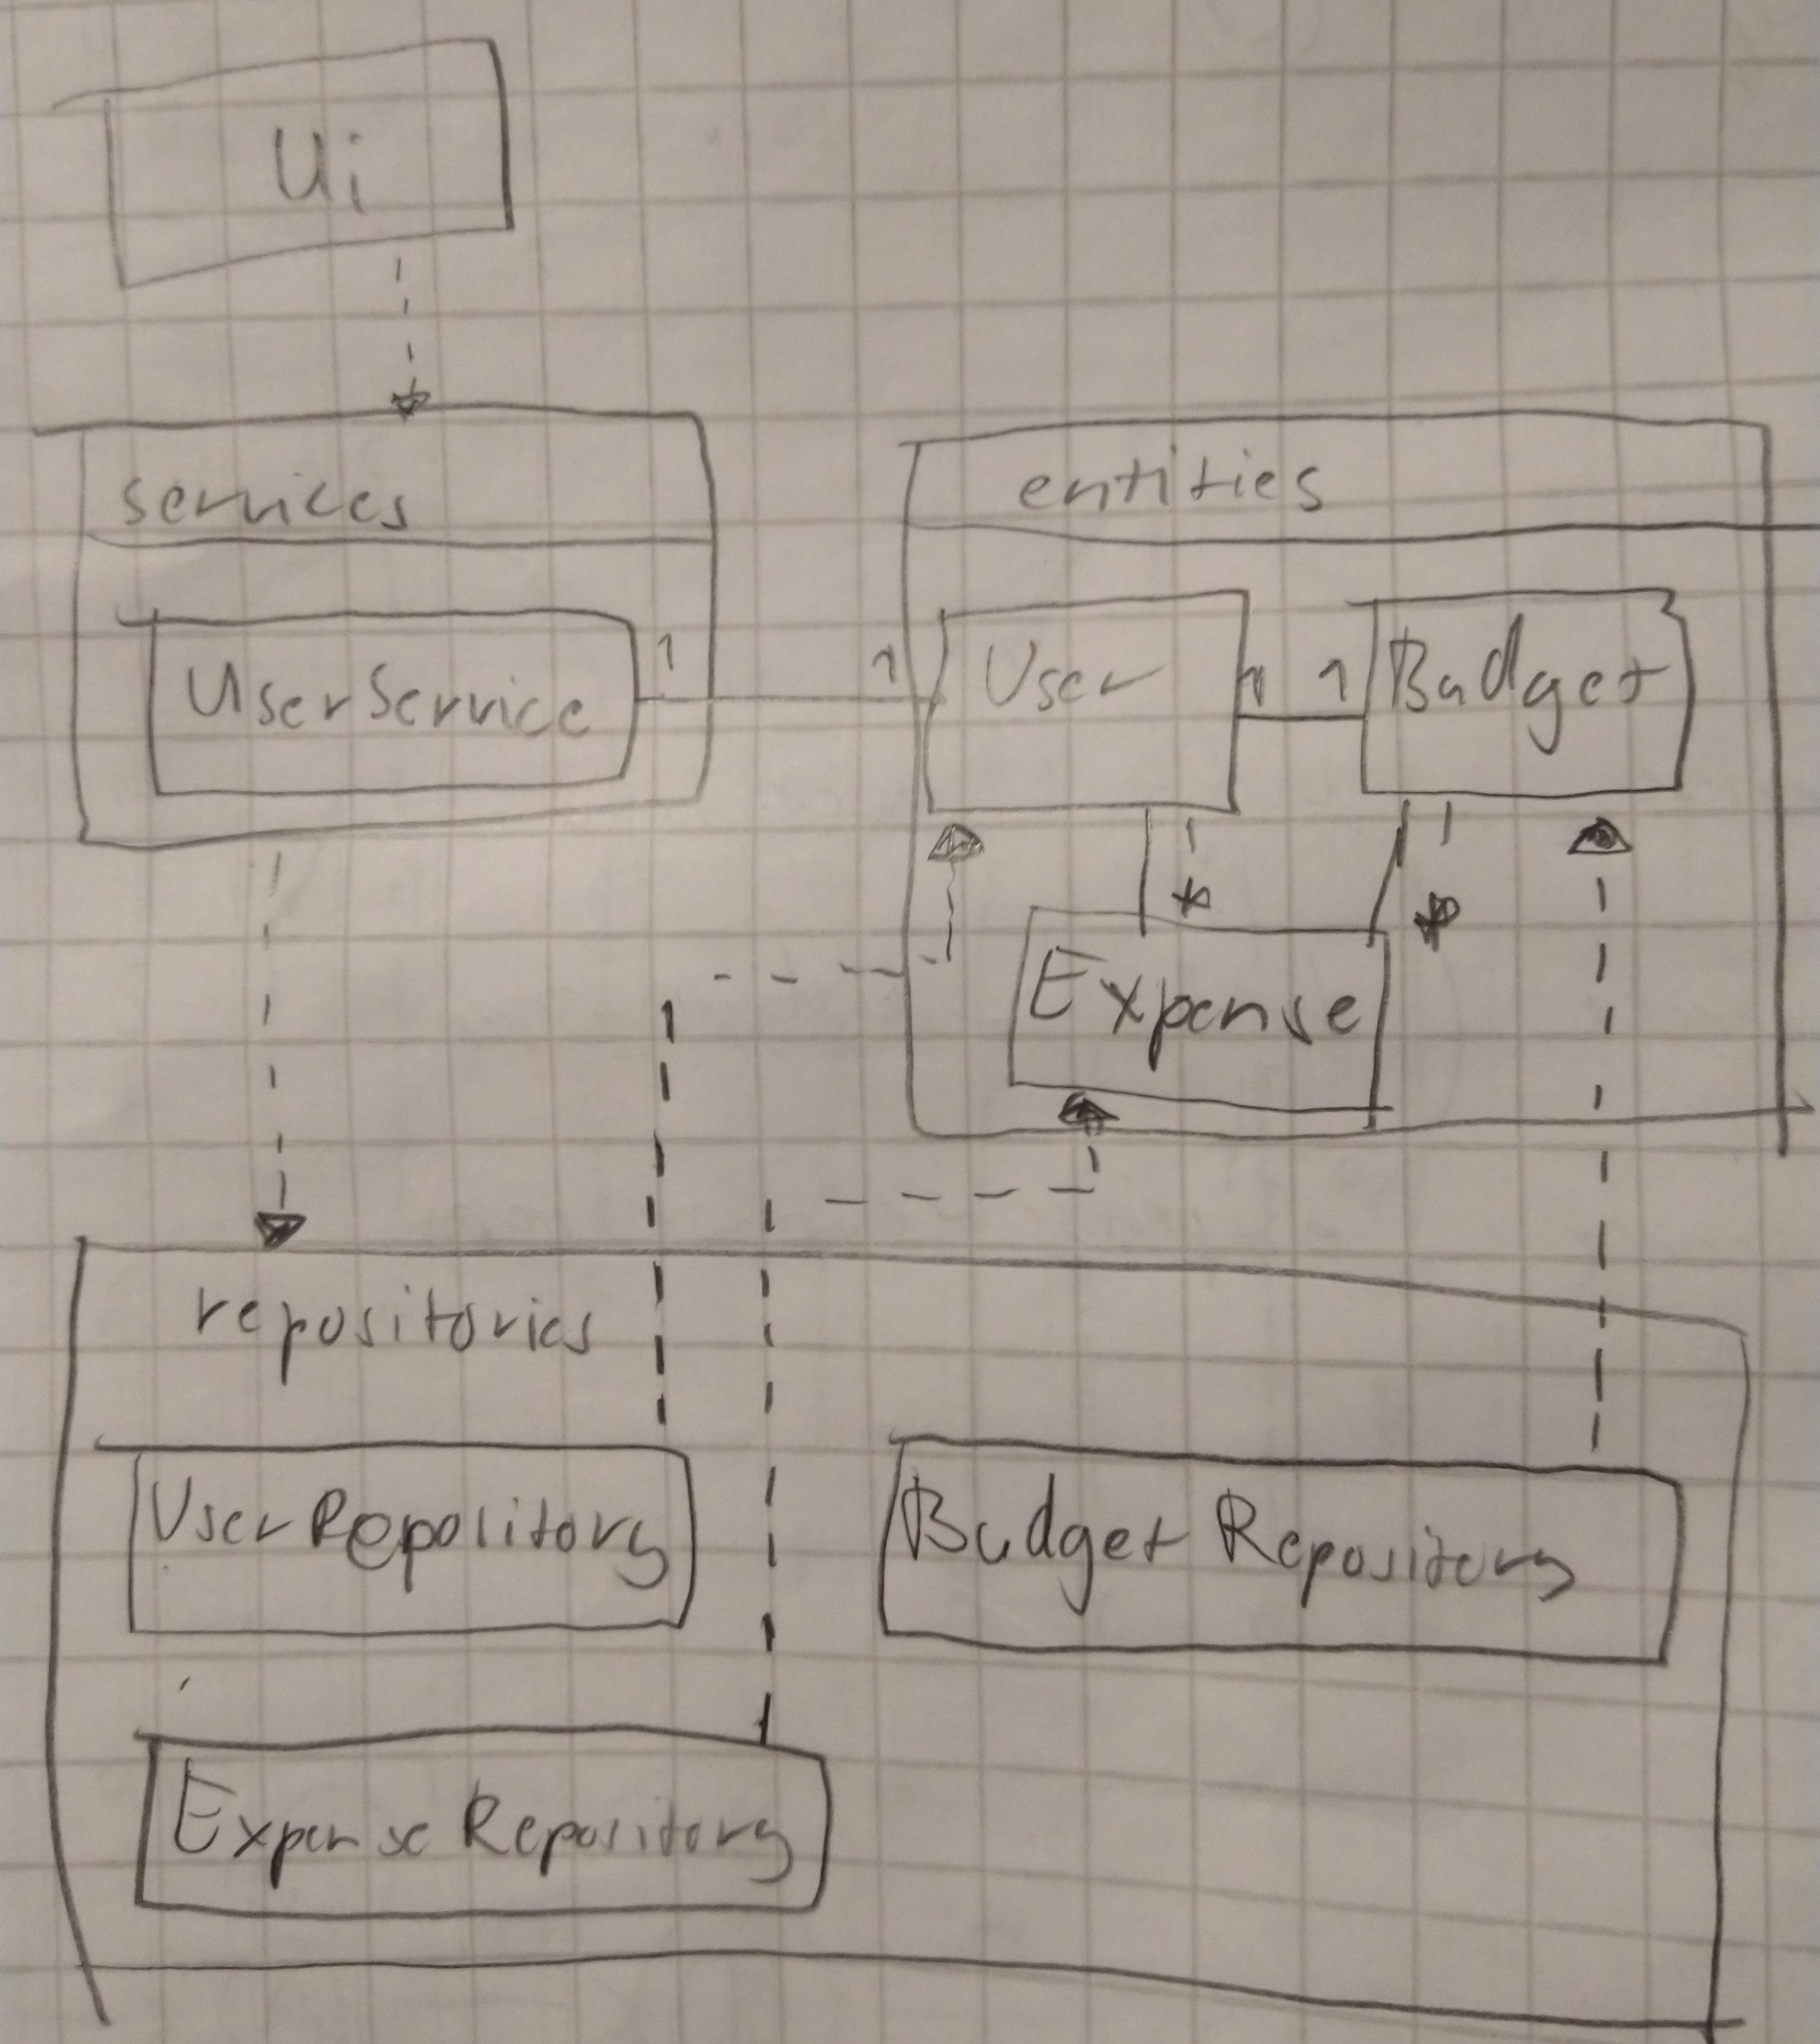 Ui
services
entities
UserService
1
1
User
1
1
Budget
1
*
1
*
Expense
repositories
UserRepository
Budget Repository
Expense Repository